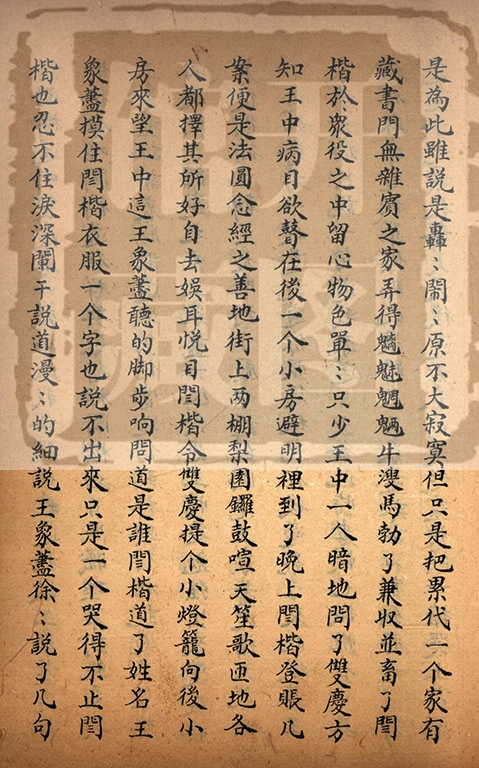 是為此雖說是轟〻鬧〻原不大寂寞但只是把累代一个家有
藏書門無雜賓之家弄得魑魅魍魎牛溲馬勃了兼収並畜了閆
楷於衆役之中留心物色單〻只少王中一人暗地問了雙慶方
知王中病目欲瞽在後一个小房避明裡到了晚上閆楷登賬几
案便是法圓念經之善地街上两棚梨園鑼鼓喧天笙歌匝地各
人都擇其所好自去娛耳悅目閆楷令雙慶提个小燈籠向後小
房來望王中這王象藎聽的脚步响問道是誰閆楷道了姓名王
象藎摸住閆楷衣服一个字也說不出來只是一个哭得不止閆
楷也忍不住淚深闌干說道漫〻的細說王象藎徐〻說了几句